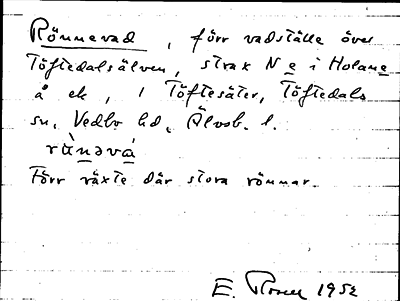 Rönnevad, förr vadställe över
Töftedalsälven, strax N e i Holane
å ek, i Töftesäter, Töftedals
sn, Vedbo hd, Älvsb. l.
rùnəvá
Förr växte där stora rönnar.
E. 1952